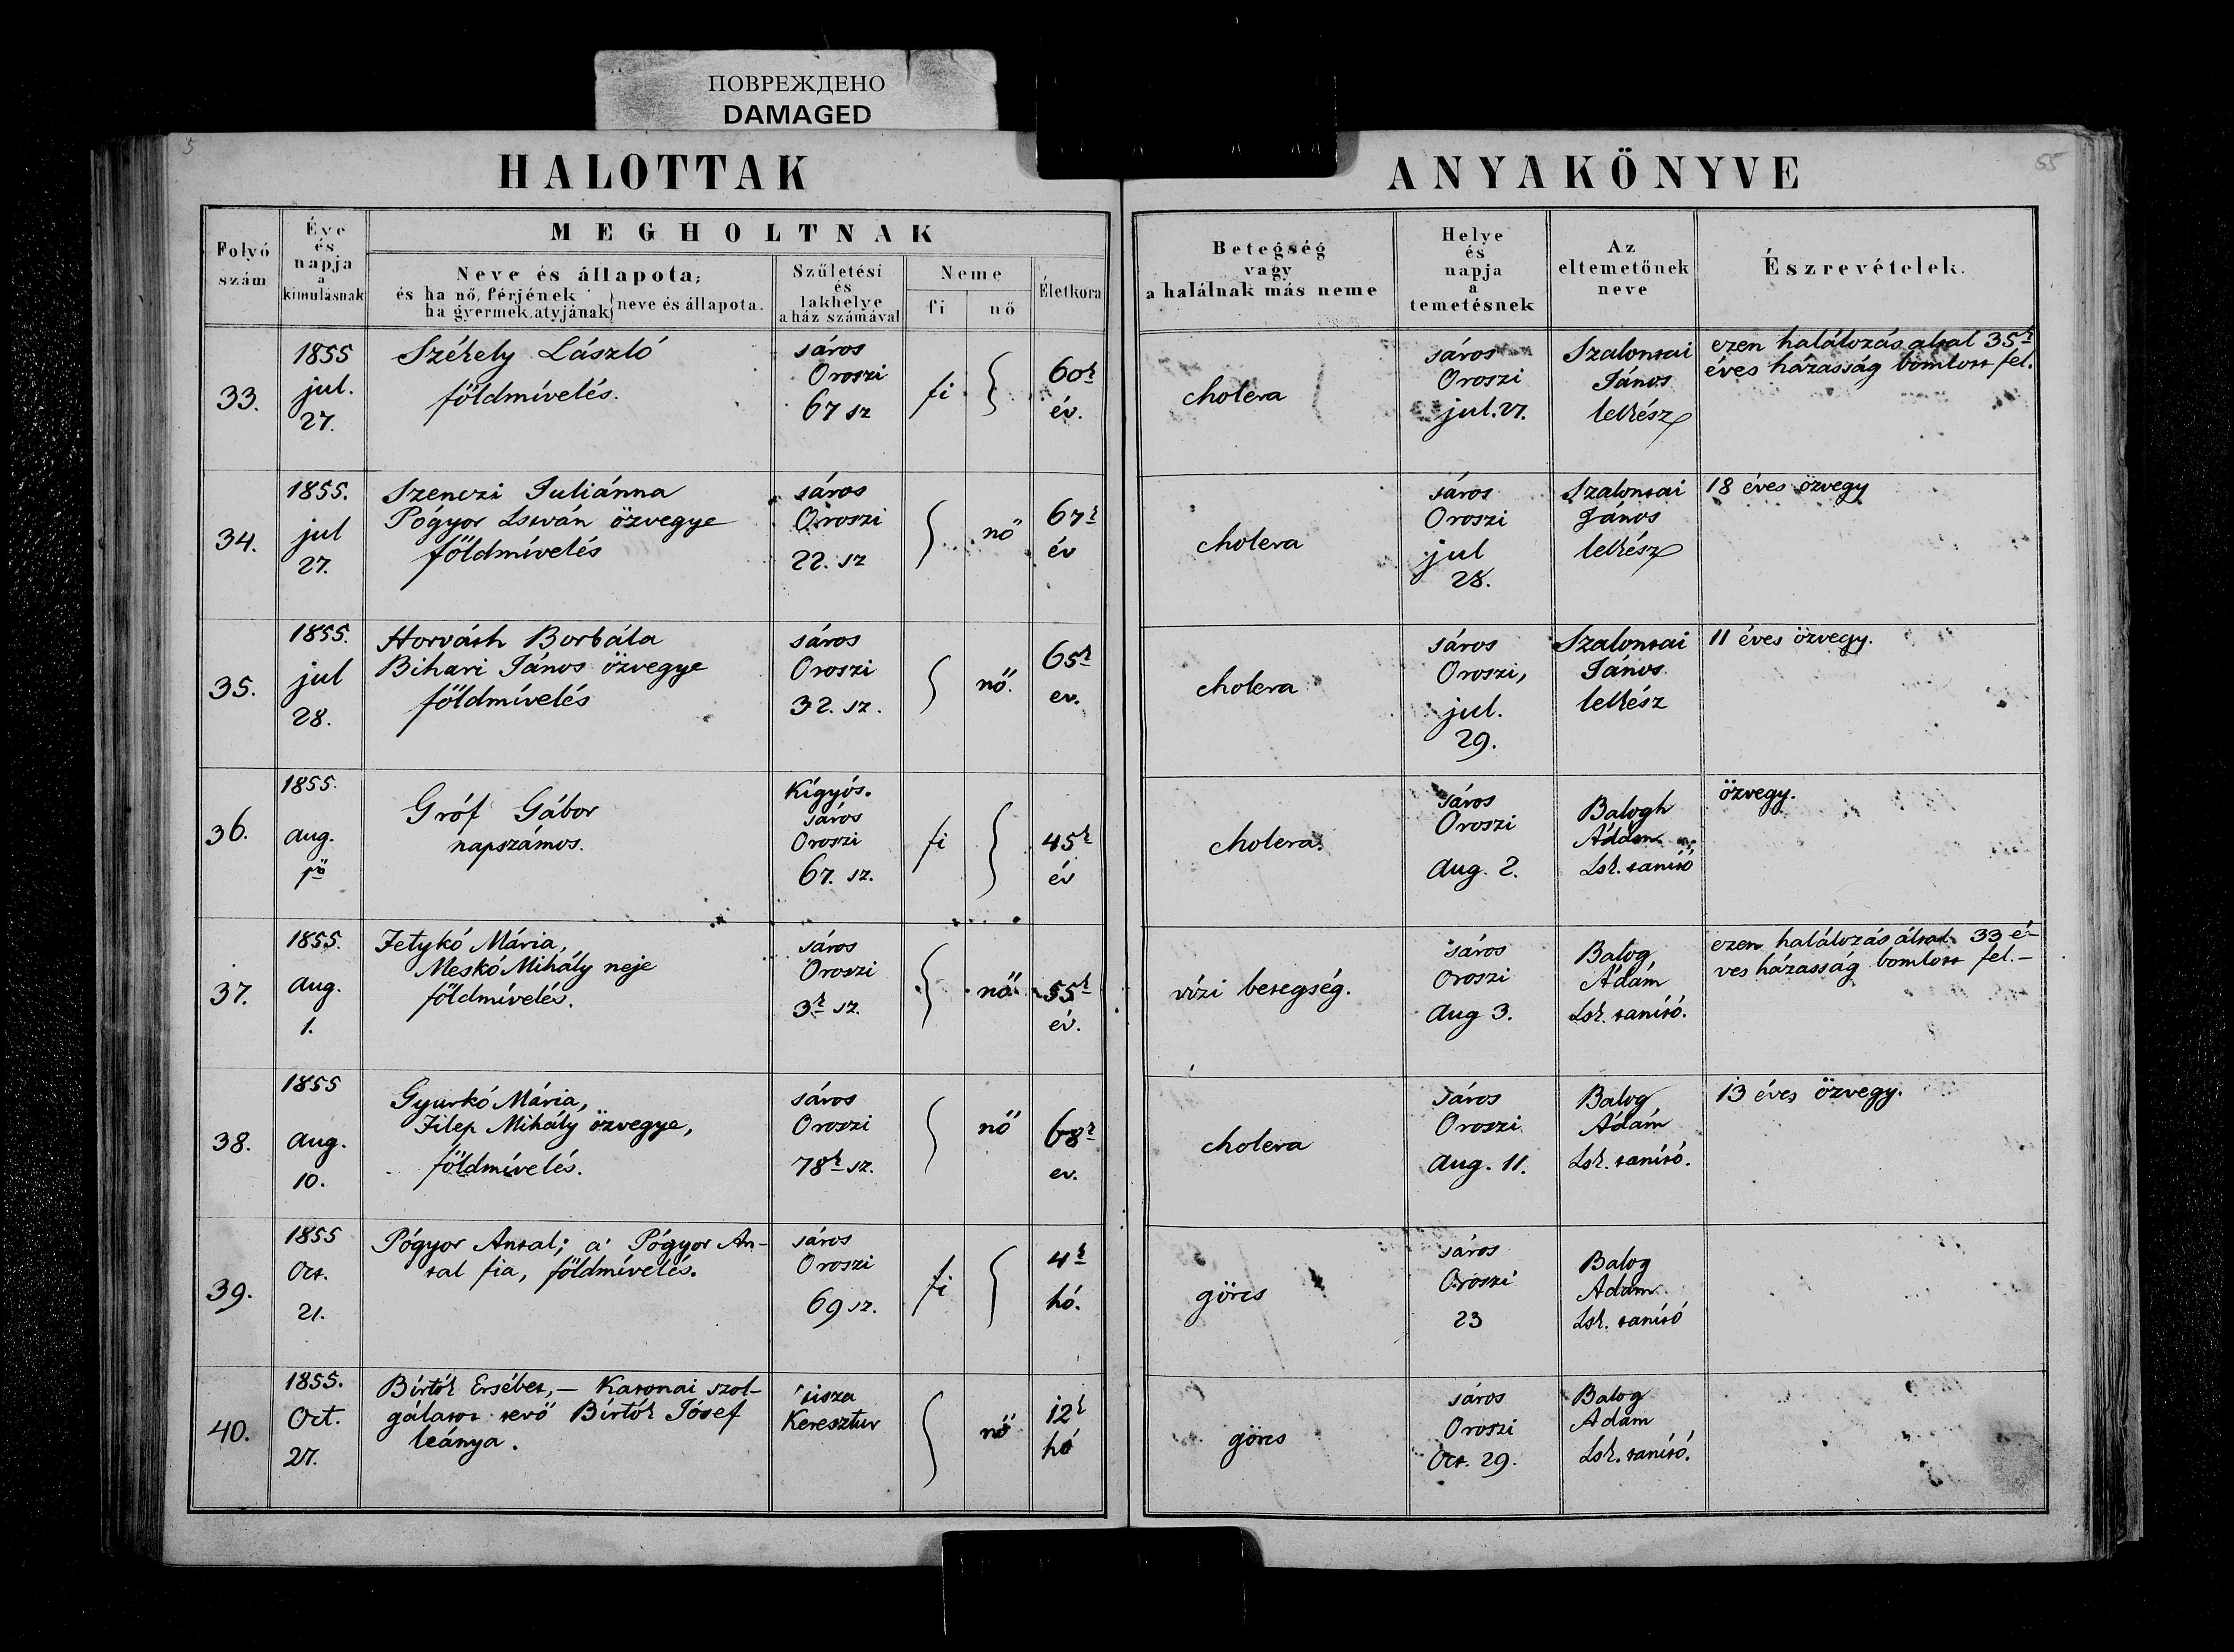 ПОВРЕЖДЕНО
DAMAGED
5
HALOTTAK
Folyó
szám
Éve
és
napja
a
kimulásnak
MEGHOLTNAK
Neve és állapota,
és ha nő, férjének
ha gyermek, atyjának
neve és állapota.
Születési
és
lakhelye
a ház számával
Neme
fi
nő
Életkora
33.
1855
jul.
27.
Székely László
földmívelés.
sáros
Oroszi
67 sz
fi
60k
év.
34.
1855.
jul
27.
Szenczi Juliánna
Pógyor István özvegye
földmívelés
sáros
Oroszi
22. sz
nő
67k
év
35.
1855.
jul
28.
Horváth Borbála
Bihari János özvegye
földmívelés
sáros
Oroszi
32. sz.
nő.
65k
ev.
36.
1855.
aug.
1ső
Gróf Gábor
napszámos.
Kígyós.
sáros
Oroszi
67. sz.
fi
45k
év
37.
1855.
aug.
1.
Fetykó Mária,
Meskó Mihály neje
földmívelés.
sáros
Oroszi
3k sz.
nő
55k
év.
38.
1855
aug.
10.
Gyurkó Mária,
Filep Mihály özvegye,
földmívelés.
sáros
Oroszi
78k sz.
nő
68k
ev.
39.
1855
Oct.
21.
Pógyor Antal; a' Pógyor An-
tal fia, földmívelés.
sáros
Oroszi
69 sz.
fi
4k
hó.
40.
1855.
Oct.
27.
Bírtók Ersébet, — Katonai szol-
gálatot tevő Bírtók Jósef
leánya.
tisza
Keresztur
nő
12k
hó
ANYAKÖNYVE
55
Betegség
vagy
a halálnak más neme
Helye
és
napja
a
temetésnek
Az
eltemetőnek
neve
Észrevételek.
cholera
sáros
Oroszi
jul. 27.
Szalontai
János
lelkész
ezen halálozás altal 35k
éves házasság bomlott fel.
cholera
sáros
Oroszi
jul
28.
Szalontai
János
lelkész
18 éves özvegy
cholera
sáros
Oroszi,
jul.
29.
Szalontai
János
lelkész
11 éves özvegy.
cholera.
sáros
Oroszi
Aug. 2.
Balogh
Ádám
Isk. tanító
özvegy.
vízi betegség.
sáros
Oroszi
Aug 3.
Balog
Ádám
Isk. tanító.
ezen halálozás által 33 é-
ves házasság bomlott fel.—
cholera
sáros
Oroszi
Aug. 11.
Balog
Ádám
Isk. tanító.
13 éves özvegy.
görcs
sáros
Oroszi
23
Balog
Adám
Isk. tanító
görcs
sáros
Oroszi
Oct. 29.
Balog
Adám
Isk. tanító.